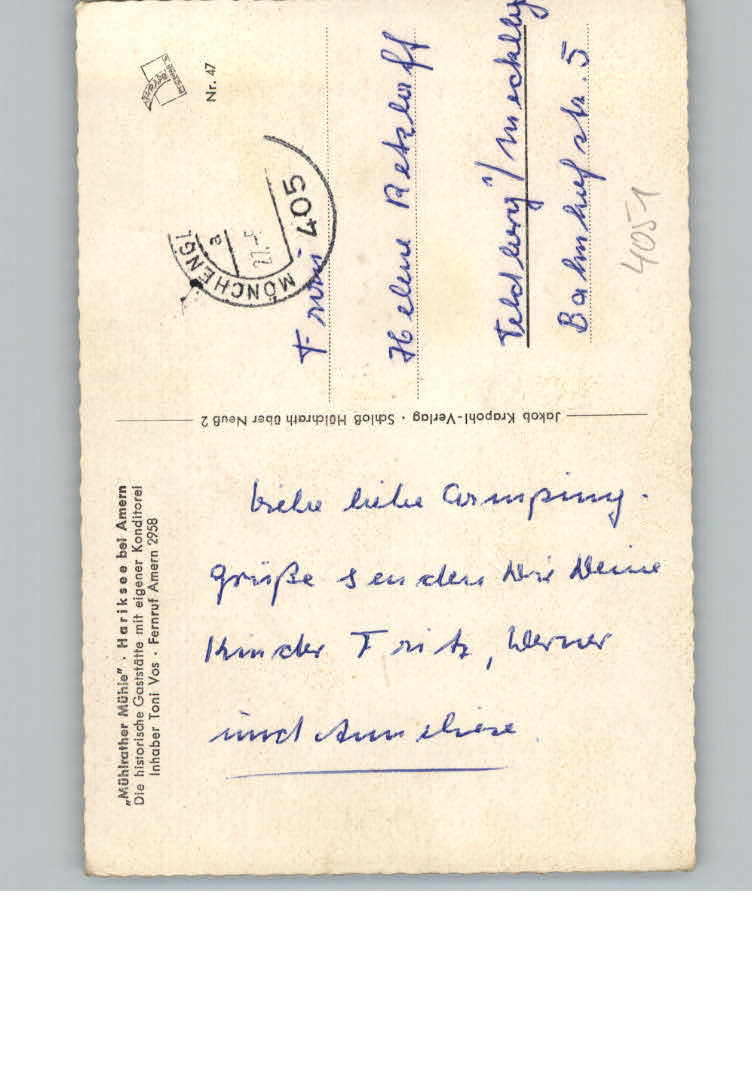 „Mühlrather Mühle" · Hariksee bei Amern
Die historische Gaststätte mit eigener Konditorei
Inhaber Toni Vos · Fernruf Amern 2958
Viele liebe Camping-
grüße senden Dir Deine
Kinder Fritz, Werner
und Anneliese.
Jakob Krapohl-Verlag · Schloß Hülchrath über Neuß 2
Nr. 47
405
MÖNCHENGL
a
Frau
Helene Retzlaff
Feldberg/Meckllbg
Bahnhofstr. 5
4051